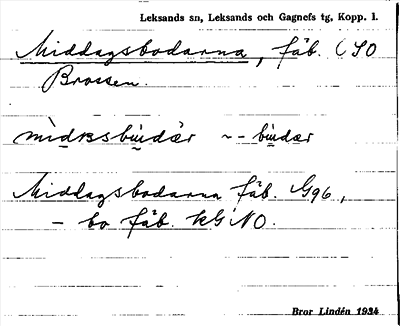 Leksands sn, Leksands och Gagnefs tg, Kopp. l.
Middagsbodarna, fäb. (SO
Brossen.
~- 
Middagsbodarna fäb. G96,
- bo fäb. kG NO.
Bror Lindén 1934